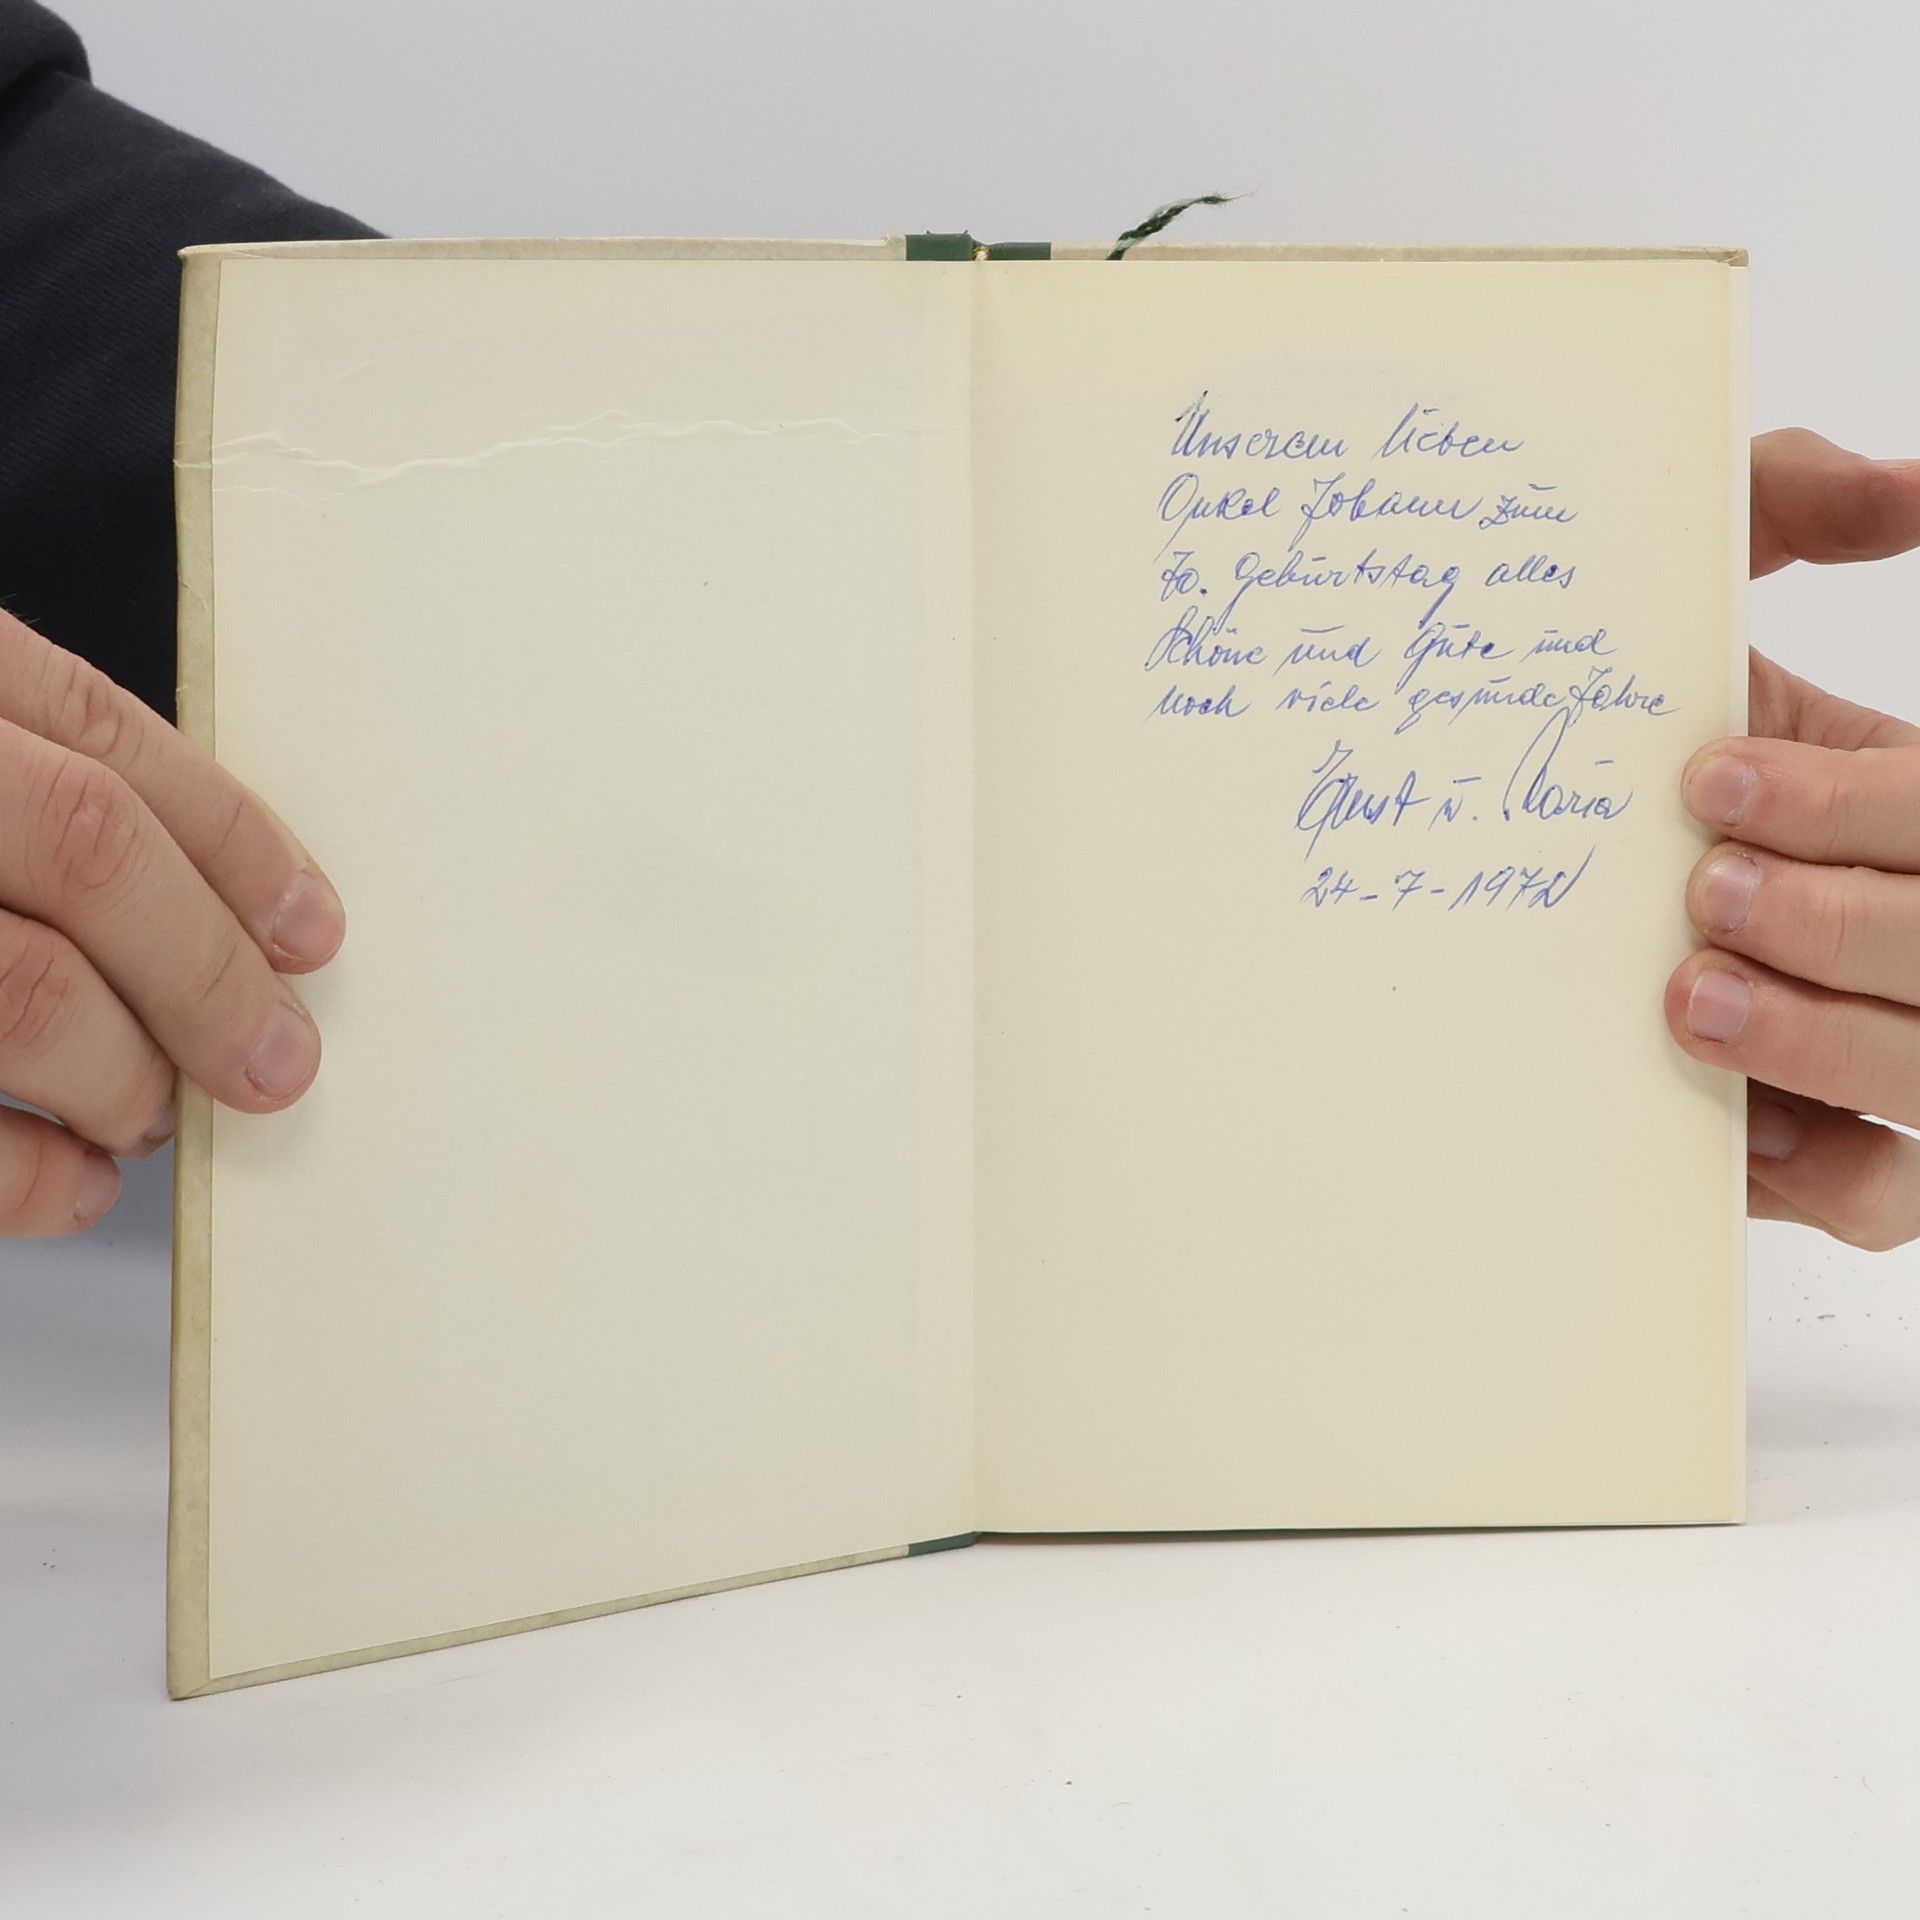 Unserem lieben
Onkel Johann zum
70. Geburtstag alles
Schöne und Gute und
noch viele gesunde Jahre
Ernst u. Maria
24-7-1972